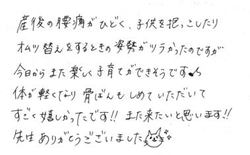 産後の腰痛がひどく、子供を抱っこしたり
オムツ替えをするときの姿勢がツラかったのですが
今日からまた楽しく子育てができそうです♪
体が軽くなり骨ばんもしめていただいて
すごく嬉しかったです!!また来たいと思います!!
先生ありがとうございました